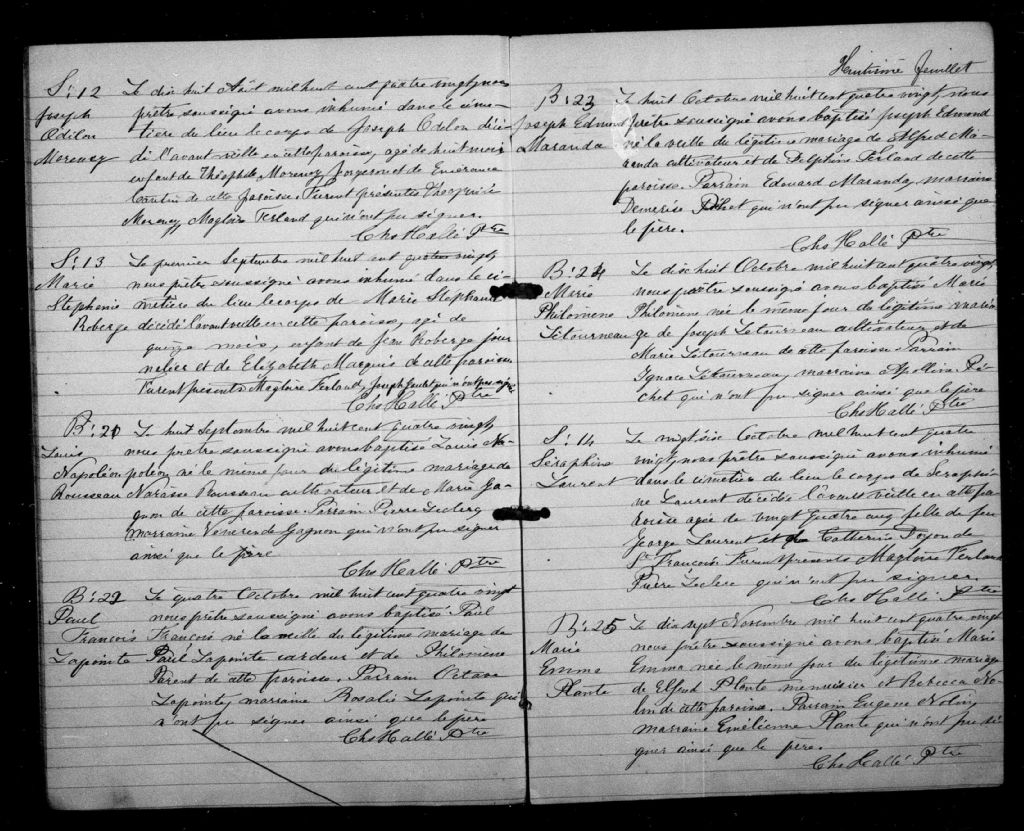 S: 12 Le dix huit Août mil huit cent quatre vingt, nous
Joseph prêtre soussigné avons inhumé dans le cime-
Odilon tière du lieu le corps de Joseph Odilon décé-
Morency dé l'avant veille en cette paroisse, agé de huit mois
enfant de Théophile Morency, forgeron et de
de cette paroisse. Furent présents Théophile
Morency, Magloire Ferland qui n'ont pu signer.
Chs Hallé Ptre
S: 13 Le premier Septembre mil huit cent quatre vingt
Marie nous prêtre soussigné avons inhumé dans le ci-
Stephanie metière du lieu le corps de Marie Stephanie
Roberge décédé l'avant veille en cette paroisse, agé de
quinze mois, enfant de Jean Roberge jour
nalier et de Elizabeth Marquis de cette paroisse
Furent présents Magloire Ferland, Joseph qui n'ont pas signé
Chs Hallé Ptre
B: 21 Le huit Septembre mil huit cent quatre vingt
Louis nous prêtre soussigné avons baptisé Louis Na-
Napoléon poléon né le même jour du légitime mariage de
Rousseau Narcisse Rousseau cultivateur et de Marie Ga-
gnon de cette paroisse. Parrain Pierre Leclerc
marraine Gagnon qui n'ont pu signer
ainsi que le père
Chs Hallé Ptre
B: 22 Le quatre Octobre mil huit cent quatre vingt
Paul nous prêtre soussigné avons baptisé Paul
François François né la veille du légitime mariage de
Lapointe Paul Lapointe cardeur et de Philomène
Parent de cette paroisse. Parrain Octave
Lapointe, marraine Rosalie Lapointe qui
n'ont pu signer ainsi que le père
Chs Hallé Ptre
Huitième feuillet
B: 23 Le huit Octobre mil huit cent quatre vingt, nous
Joseph Edmond prêtre soussigné avons baptisé Joseph Edmond
Maranda né la veille du légitime mariage de Elfred Ma-
randa cultivateur et de Delphine Ferland de cette
paroisse. Parrain Edouard Maranda, marraine
Demerise Pichet qui n'ont pu signer ainsi que
le père.
Chs Hallé Ptre
B: 24 Le dix huit Octobre mil huit cent quatre vingt,
Marie nous prêtre soussigné avons baptisé Marie
Philomène Philomène née le même jour du légitime maria-
Létourneau ge de Joseph Letourneau cultivateur et de
Marie Létourneau de cette paroisse. Parrain
Ignace Letourneau, marraine Apolline Pi-
chet qui n'ont pu signer ainsi que le père
Chs Hallé Ptre
S: 14 Le vingt six Octobre mil huit cent quatre
Séraphine vingt, nous prêtre soussigné avons inhumé
Laurent dans le cimetière du lieu le corps de Seraphi-
ne Laurent décédée l'avant veille en cette pa-
roisse agée de vingt quatre ans, fille de feu
George Laurent et de Catherine
St François. Furent présents Magloire Ferland
Pierre Leclerc qui n'ont pu signer.
Chs Hallé Ptre
B: 25 Le dix sept Novembre mil huit cent quatre vingt
Marie nous prêtre soussigné avons baptisé Marie
Emma Emma née le même jour du légitime mariage
Plante de Elfred Plante menuisier et Rebecca No-
lin de cette paroisse. Parrain Eugène Nolin,
marraine Emélienne Plante qui n'ont pu si-
gner ainsi que le père.
Chs Hallé Ptre